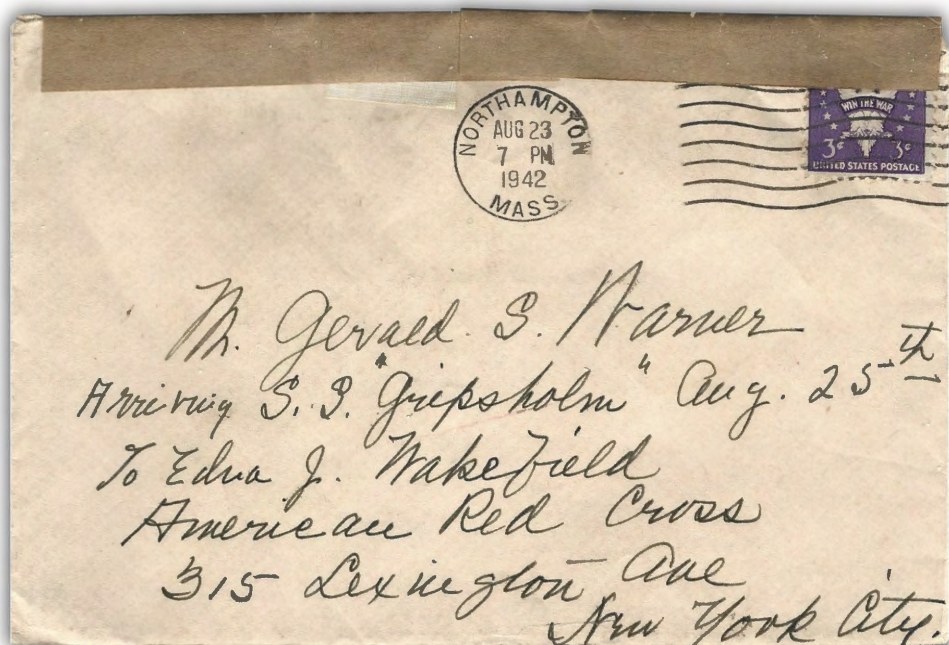 NORTHAMPTON
AUG 23
7 PM
1942
MASS
WIN THE WAR
3¢ 3¢
UNITED STATES POSTAGE
Mr. Gerald. S. Warner
Arriving S.S. "Gripsholm" Aug. 25th
To Edna J. Wakefield
American Red Cross
315 Lexington Ave
New York City.